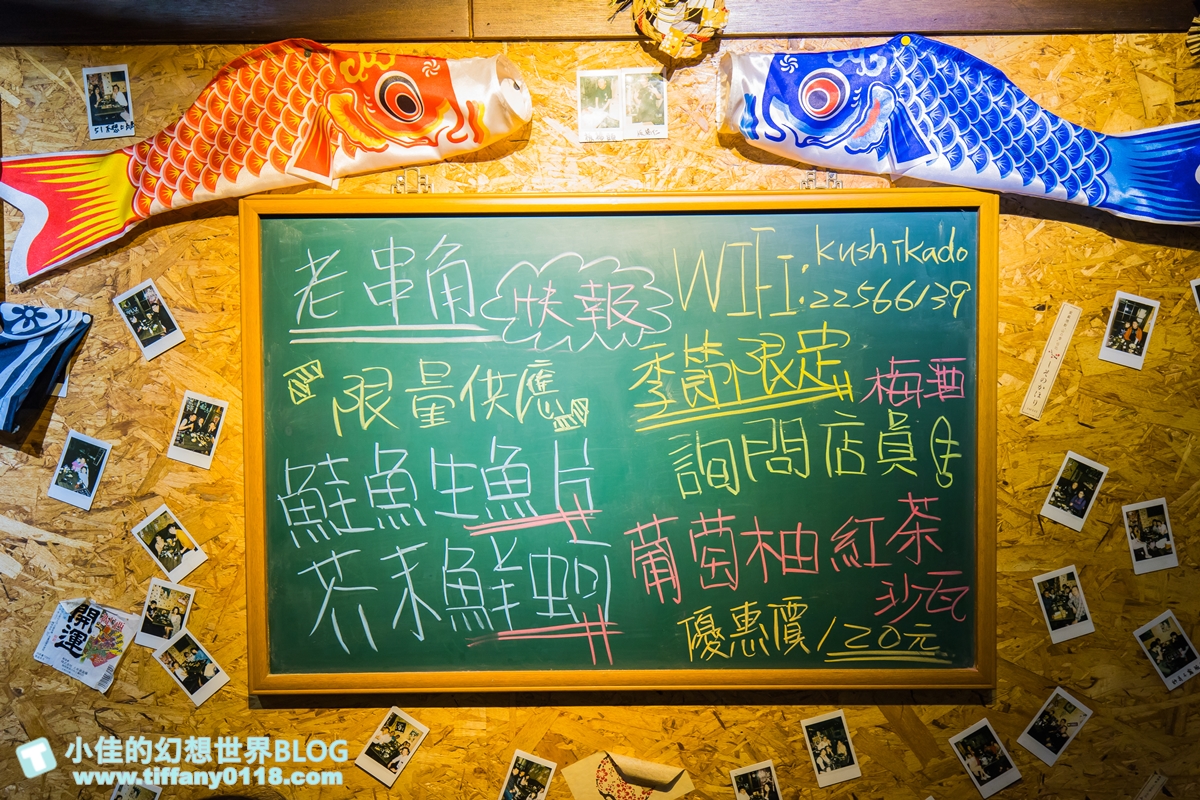 老串角 快報
限量供應
鮭魚生魚片
芥末鮮蚵
WIFI: kushikado
22566139
季節限定
梅酒
詢問店員
葡萄柚紅茶
沙瓦
優惠價120元
開運
小佳的幻想世界BLOG
www.tiffany0118.com